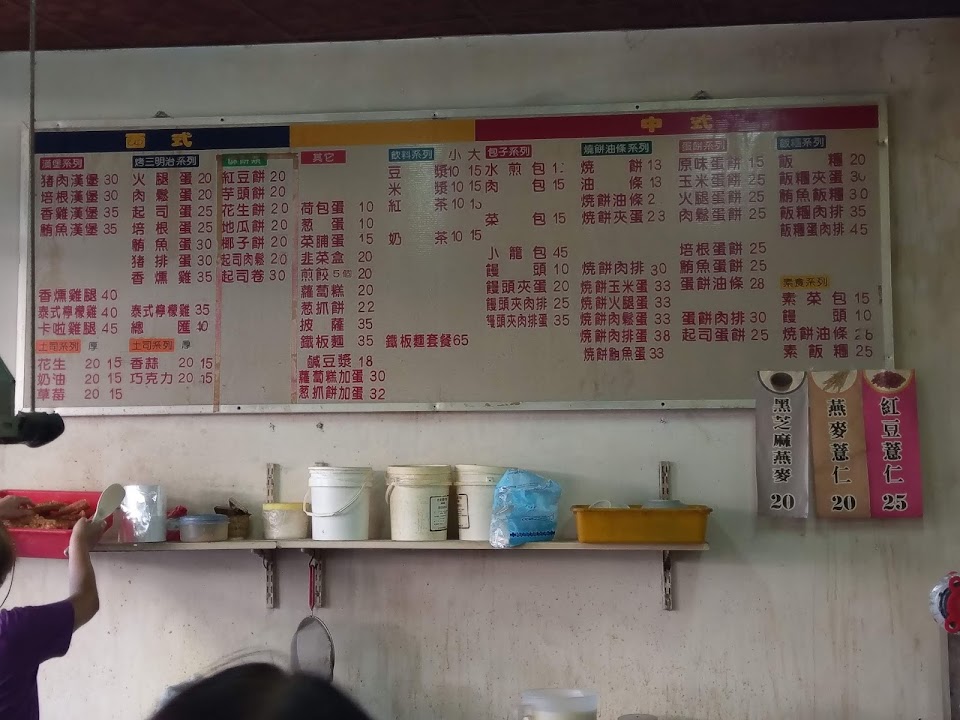 西式
中式
漢堡系列
豬肉漢堡 30
培根漢堡 30
香雞漢堡 35
鮪魚漢堡 35
香燻雞腿 40
泰式檸檬雞 40
卡啦雞腿 45
土司系列 厚
花生 20 15
奶油 20 15
草莓 20 15
烤三明治系列
火腿蛋 20
肉鬆蛋 20
起司蛋 25
培根蛋 25
鮪魚蛋 30
豬排蛋 30
香燻雞 35
泰式檸檬雞 35
總匯 40
土司系列 厚
香蒜 20 15
巧克力 20 15
紅豆餅 20
芋頭餅 20
花生餅 20
地瓜餅 20
椰子餅 20
起司肉鬆 20
起司卷 30
其它
荷包蛋 10
蔥蛋 10
菜脯蛋 15
韭菜盒 20
煎餃5個 20
蘿蔔糕 20
葱抓餅 22
披薩 35
鐵板麵 35
鹹豆漿 18
蘿蔔糕加蛋 30
葱抓餅加蛋 32
飲料系列 小 大
豆漿 10 15
米漿 10 15
紅茶 10 15
奶茶 10 15
鐵板麵套餐65
包子系列
水煎包
肉包 15
菜包 15
小籠包 45
饅頭 10
饅頭夾蛋 20
饅頭夾肉排 25
饅頭夾肉排蛋 35
燒餅油條系列
燒餅 13
油條 13
燒餅油條
燒餅夾蛋 23
燒餅肉排 30
燒餅玉米蛋 33
燒餅火腿蛋 33
燒餅肉鬆蛋 33
燒餅肉排蛋 38
燒餅鮪魚蛋 33
蛋餅系列
原味蛋餅 15
玉米蛋餅 25
火腿蛋餅 25
肉鬆蛋餅 25
培根蛋餅 25
鮪魚蛋餅 25
蛋餅油條 28
蛋餅肉排 30
起司蛋餅 25
飯糰系列
飯糰 20
飯糰夾蛋 30
鮪魚飯糰 30
飯糰肉排 35
飯糰蛋肉排 45
素食系列
素菜包 15
饅頭 10
燒餅油條
素飯糰 25
黑芝麻燕麥
20
燕麥薏仁
20
紅豆薏仁
25